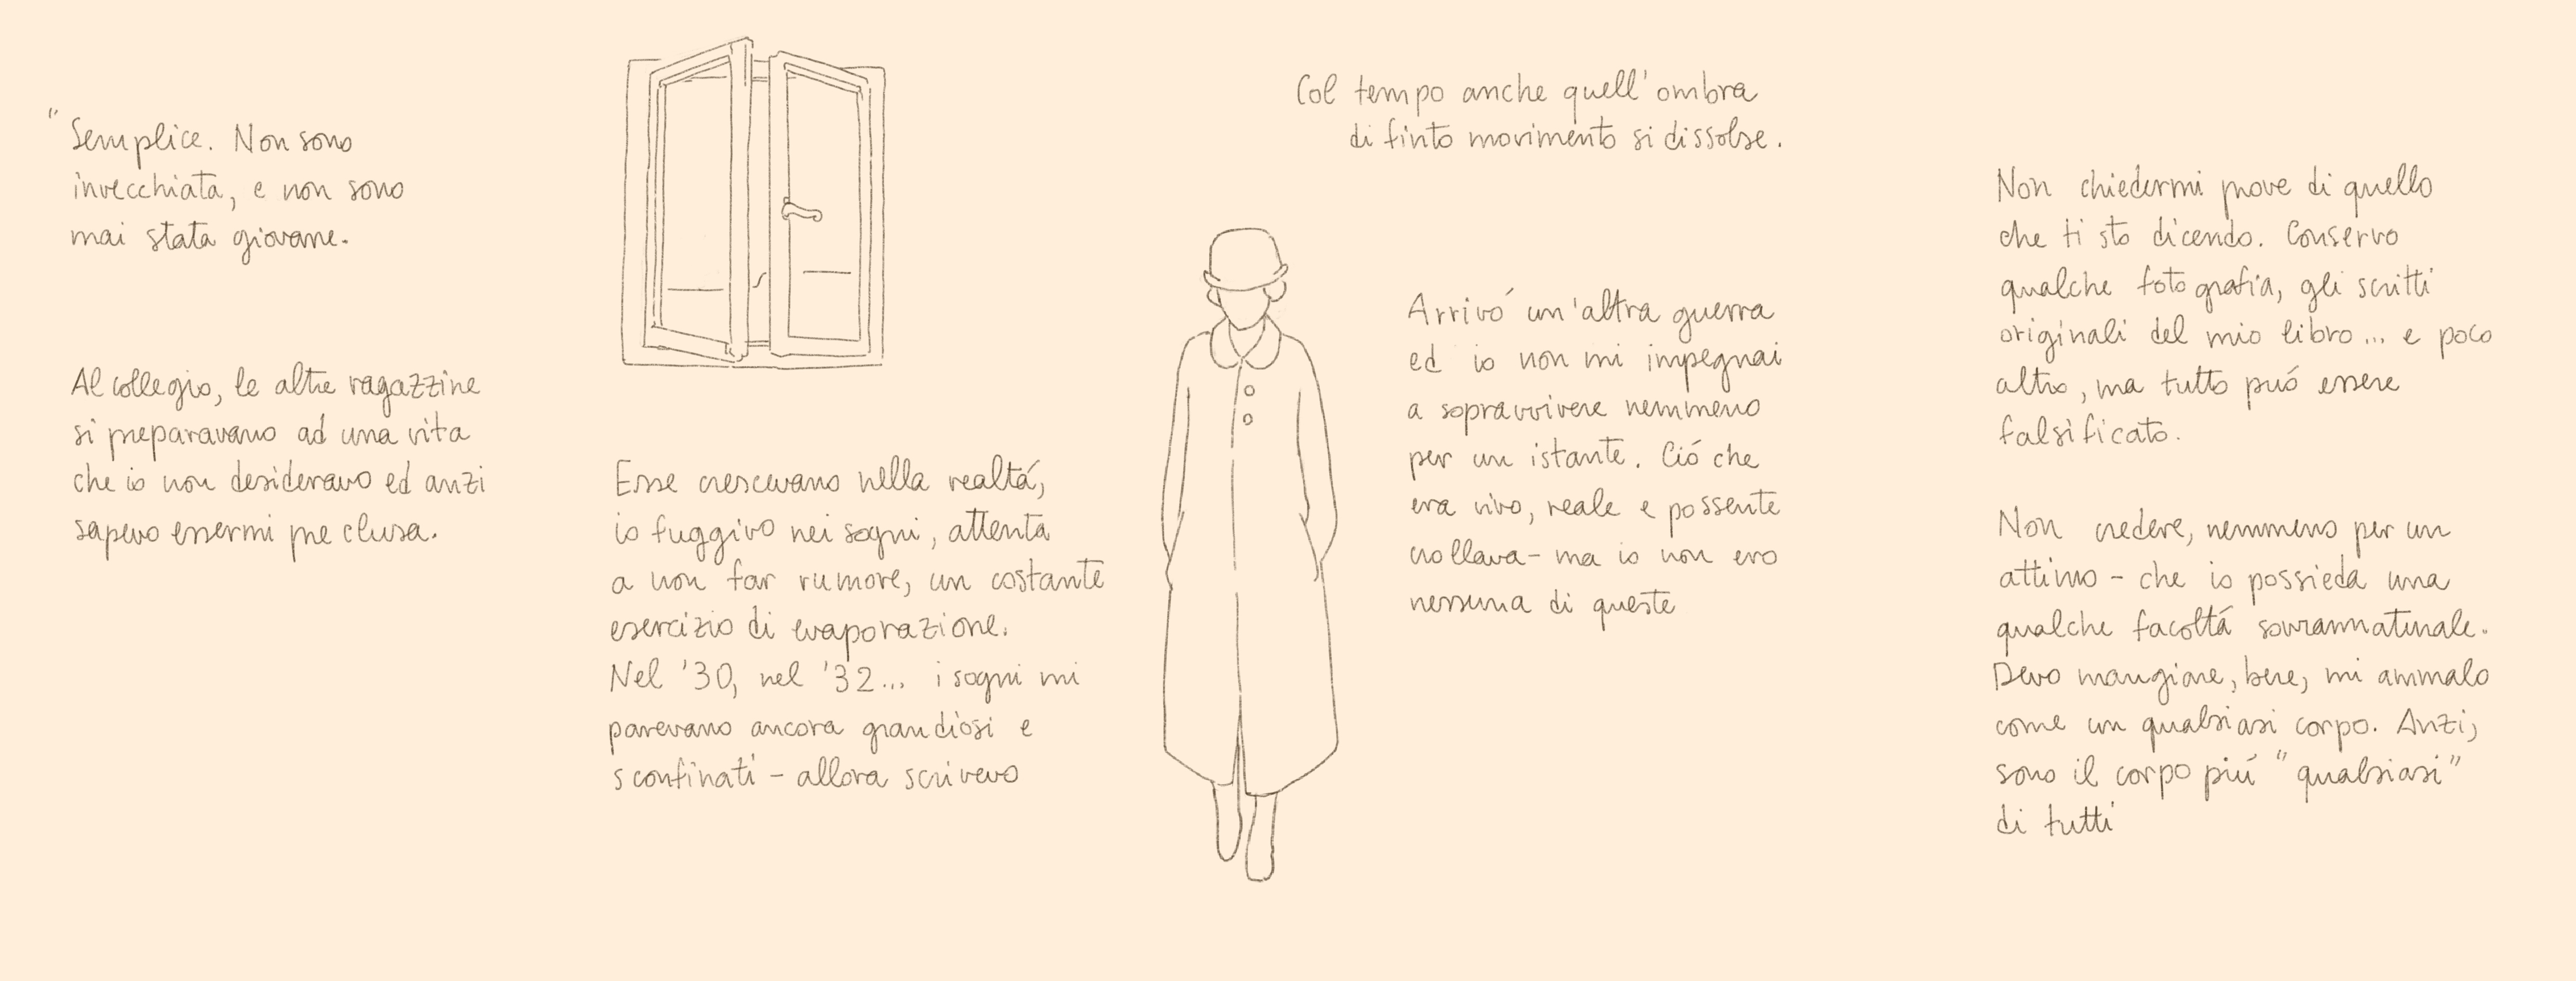 "Semplice. Non sono
invecchiata, e non sono
mai stata giovane.
Al collegio, le altre ragazzine
si preparavano ad una vita
che io non desideravo ed anzi
sapevo essermi preclusa.
Esse crescevano nella realtá,
io fuggivo nei sogni, attenta
a non far rumore, un costante
esercizio di evaporazione.
Nel '30, nel '32... i sogni mi
parevano ancora grandiosi e
sconfinati - allora scrivevo
Col tempo anche quell'ombra
di finto movimento si dissolse.
Arrivó un'altra guerra
ed io non mi impegnai
a sopravvivere nemmeno
per un istante. Ció che
era vivo, reale e possente
crollava - ma io non ero
nessuna di queste
Non chiedermi prove di quello
che ti sto dicendo. Conservo
qualche fotografia, gli scritti
originali del mio libro... e poco
altro, ma tutto puó essere
falsificato.
Non credere, nemmeno per un
attimo - che io possieda una
qualche facoltá sovrannaturale.
Devo mangiare, bere, mi ammalo
come un qualsiasi corpo. Anzi,
sono il corpo piú "qualsiasi"
di tutti